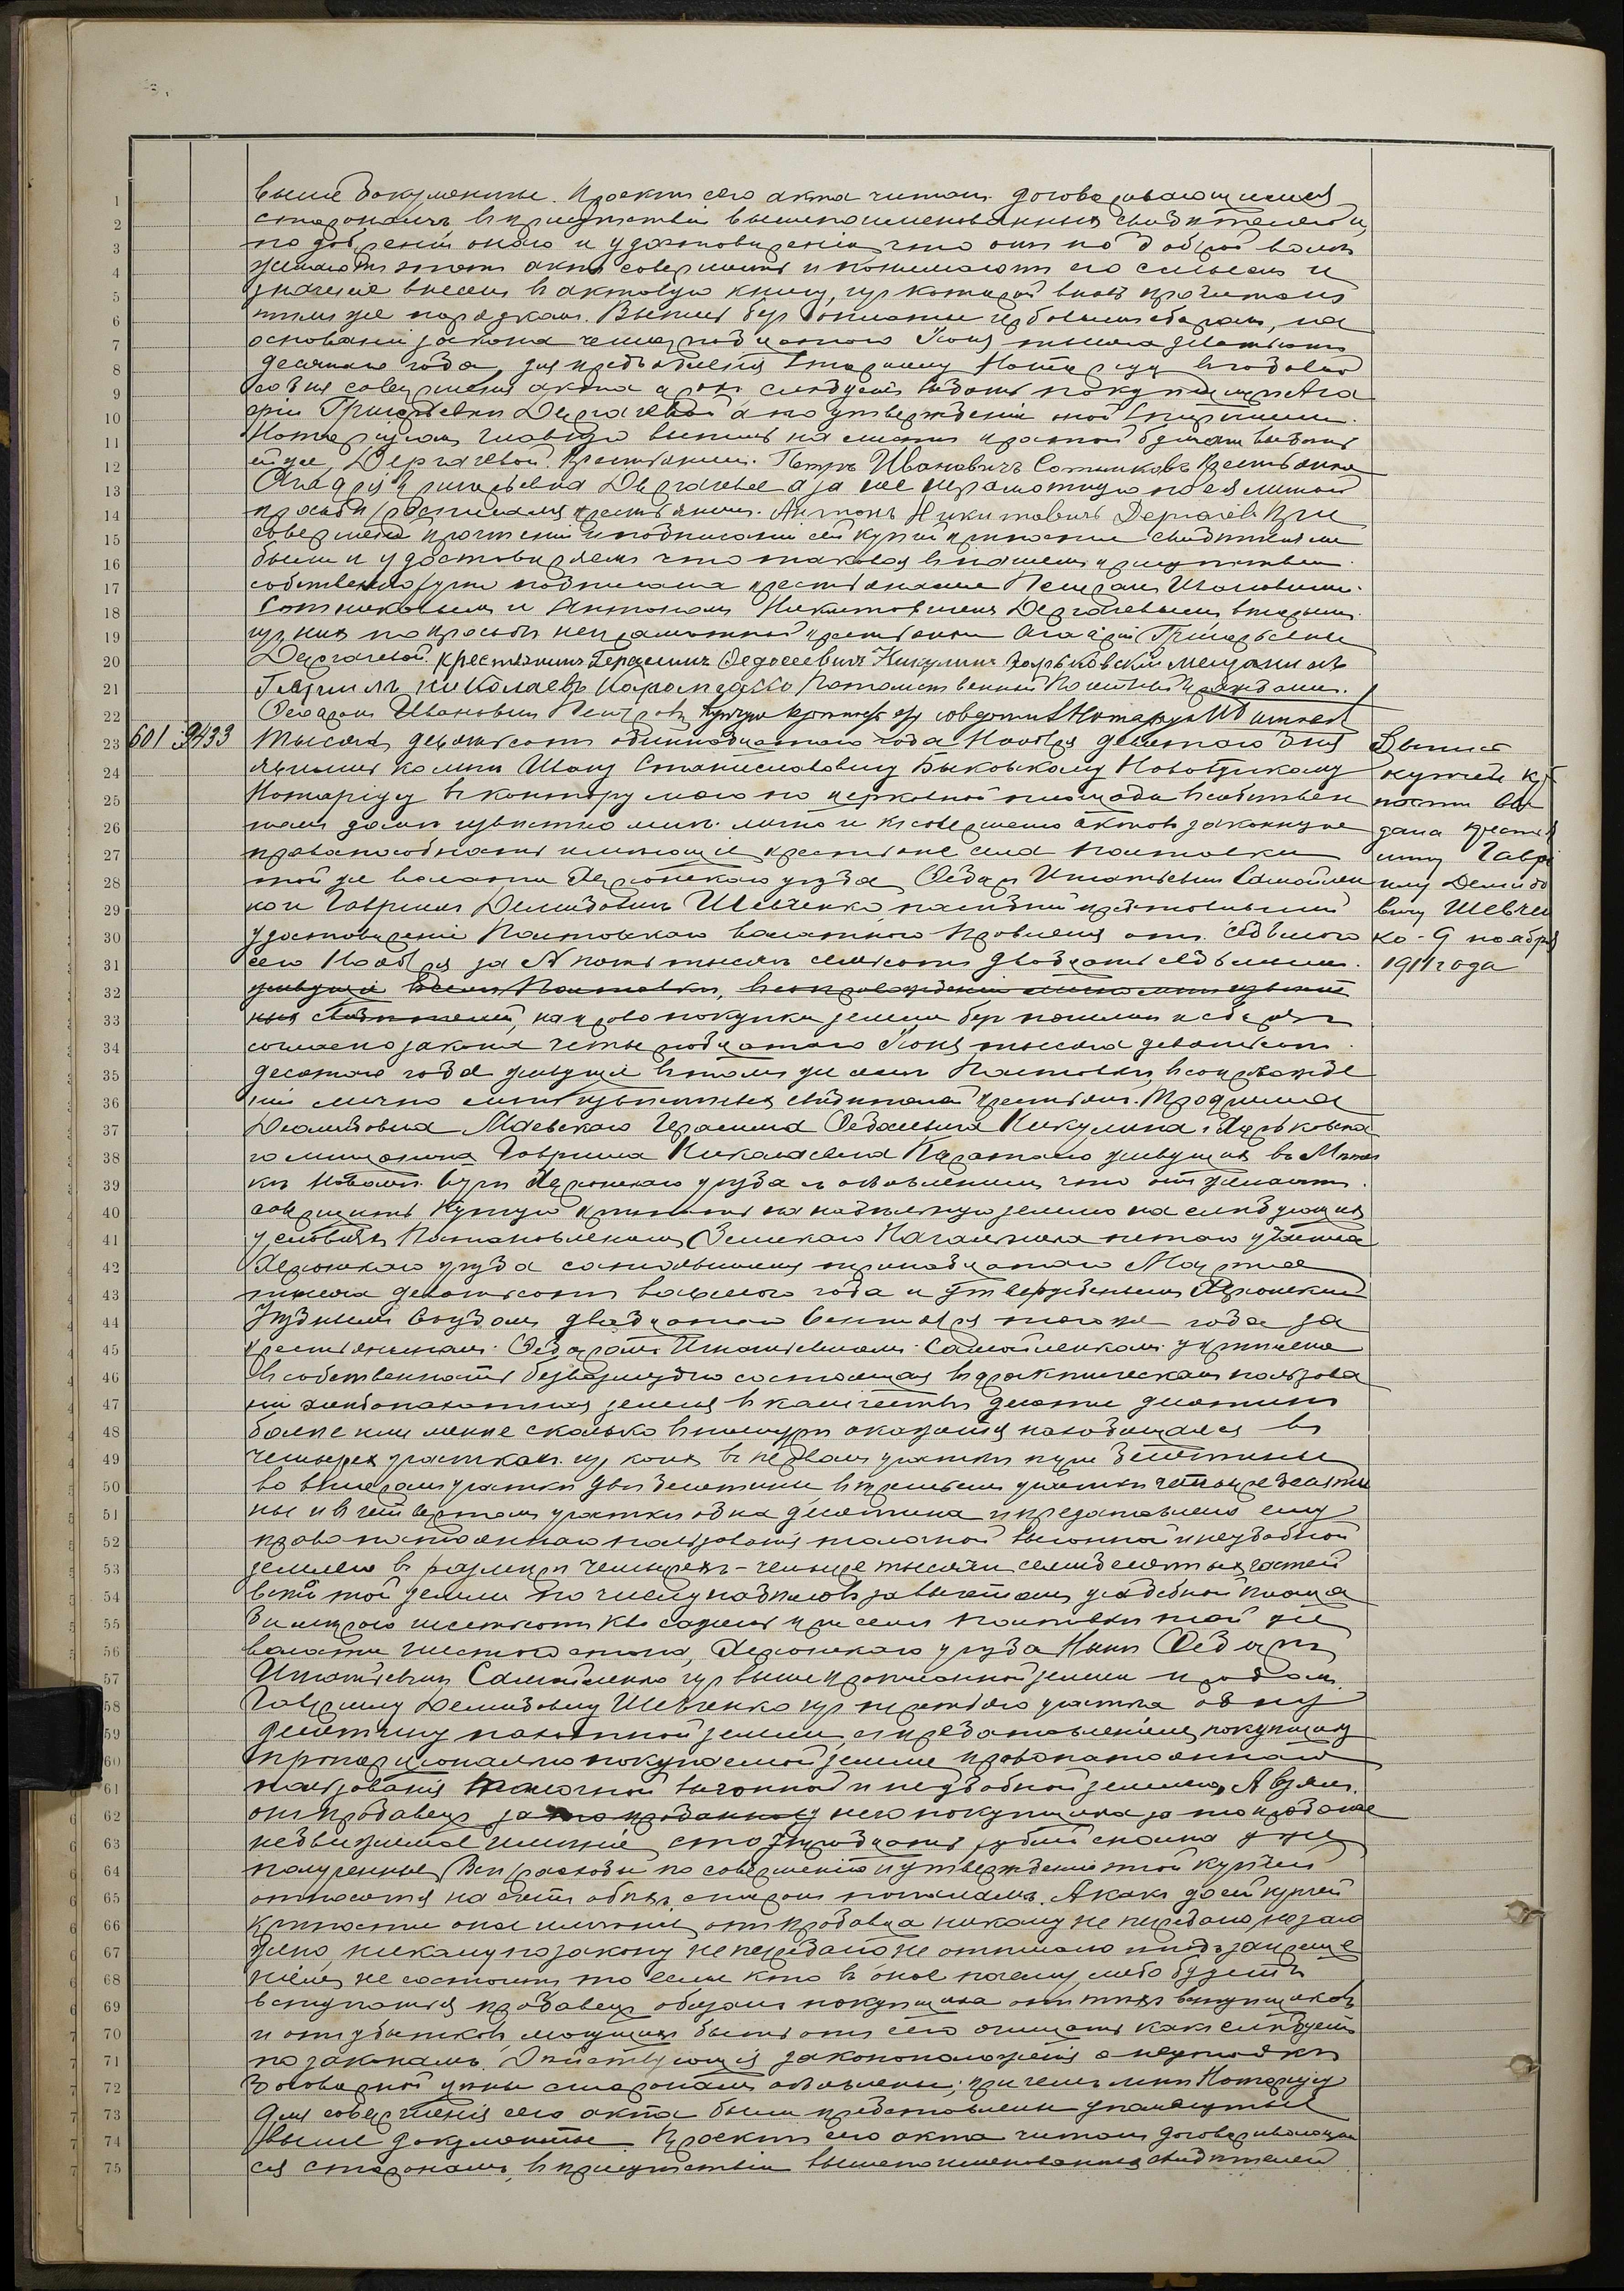 выше документы. Проектъ сего акта читанъ договаривающимся
сторонамъ въ присутствіи вышепоименованныхъ свидѣтелей и,
по одобреніи онаго и удостовѣреніи, что они по доброй волѣ
желаютъ этотъ актъ совершить и понимаютъ его смыслъ и
значеніе внесенъ въ актовую книгу, изъ которой вновь прочитанъ
тѣмъ же порядкомъ. Выпись безъ оплаты гербовымъ сборомъ, на
основаніи закона четырнадцатаго Іюня тысяча девятьсотъ
десятаго года, для предъявленія Старшему Нотаріусу въ годовой
со дня совершенія акта срокъ слѣдуетъ выдать покупщицѣ Ага
фіи Григорьевнѣ Дергачевой а по утвержденіи оной Старшимъ
Нотаріусомъ главную выпись на листѣ простой бумаги выдать
ей же, Дергачевой. Крестьянинъ Петръ Ивановичъ Сотниковъ Крестьянка
Агафія Григорьевна Дергачева а за нее неграмотную по ея личной
просьбѣ росписался крестьянинъ Антонъ Никитовичъ Дергачевъ При
совершеніи прочтеніи и подписаніи сей купчей крѣпости свидѣтелями
были и удостовѣряемъ что таковая въ нашемъ присутствіи
собственноручно подписана крестьянами Петромъ Ивановичемъ
Сотниковымъ и Антономъ Никитовичемъ Дергачевымъ, вторымъ
изъ нихъ по просьбѣ неграмотной крестьянки Агафіи Григорьевны
Дергачевой. Крестьянинъ Герасимъ Ѳедосеевичъ Никулинъ Харьковскій мещанинъ
Гавриилъ Николаевъ Потомственный Почетный гражданинъ
Ивановичъ Петровъ Купчую крѣпость эту совершилъ Нотаріусъ
601 9433 Тысяча девятьсотъ одиннадцатаго года Ноября девятаго дня
явились ко мнѣ Ивану Станиславовичу Быковскому Новобугскому
Нотаріусу въ контору мою по церковной площади въ собствен
номъ домѣ извѣстные мнѣ лично и къ совершенію актовъ законную
правоспособность имѣющіе крестьяне села Полтавки
той же волости Херсонскаго уѣзда Ѳедоръ Игнатьевичъ Самойлен
ко и Гавріилъ Демидовичъ Шевченко, послѣдній представившій
удостовѣреніе Полтавскаго волостного Правленія отъ седьмого
сего Ноября за № пять тысячъ семьсотъ двадцать седьмымъ
живущіе въ селѣ Полтавкѣ, въ сопровожденіи лично мнѣ извѣст
ныхъ свидѣтелей, на право покупки земли безъ пошлинъ и сборовъ
согласно закона четырнадцатаго Іюня тысяча девятьсотъ
десятаго года живущіе въ томъ же селѣ Полтавкѣ, въ сопровожде
ніи лично мнѣ извѣстныхъ свидѣтелей крестьянъ Трофима
Демидовича Маевскаго Герасима Ѳедосеевича Никулина и Харьковска
го мещанина Гавріила Николаевича живущихъ въ
Новомъ Бугѣ Херсонскаго уѣзда съ объявленіемъ что они желаютъ
совершить Купчую крѣпость на надѣльную землю на слѣдующихъ
условіяхъ Постановленіемъ Земскаго Начальника пятаго участка
Херсонскаго уѣзда состоявшимся тринадцатаго Марта
тысяча девятьсотъ восьмого года и утвержденнымъ Херсонскимъ
Уѣзднымъ Съѣздомъ двадцатаго Сентября того же года за
крестьяниномъ Ѳедоромъ Игнатьевичемъ Самойленкомъ укрѣплена
въ собственность безвозмездно состоящая въ фактическомъ пользова
ніи хлѣбопахотная земля въ количествѣ десяти десятинъ
болѣе или менѣе сколько въ натурѣ окажется находящаяся въ
четырехъ участкахъ изъ коихъ въ первомъ участкѣ три десятины
во второмъ участкѣ двѣ десятины, въ третьемъ участкѣ четыре десяти
ны и въ четвертомъ участкѣ одна десятина и предоставлено ему
право постояннаго пользованія толочной выгонной и неудобной
землею въ размѣрѣ четырехъ - четыре тысячи семидесятыхъ частей
всей той земли по числу надѣловъ за вычетомъ усадебной
шестьсотъ кв. саженъ при селѣ Полтавкѣ той же
волости, Херсонскаго уѣзда Нынѣ Ѳедоръ
Игнатьевичъ Самойленко изъ выше прописанной земли продалъ
Гавріилу Демидовичу Шевченко изъ третьяго участка одну
десятину пахотной земли, съ предоставленіемъ покупщику
пропорціонально покупаемой земли права постояннаго
пользованія толочной выгонной и неудобной землею, А взялъ
онъ продавецъ за то проданное у него покупщика за то продаже
недвижимое имѣніе сто тридцать рублей сполна уже
полученные Всѣ расходы по совершенію и утвержденію этой купчей
относятся на счетъ обѣихъ сторонъ пополамъ. А какъ до сей купчей
крѣпости оное имѣніе отъ продавца никому не передано не зало
жено, никому по закону не передано не отписано и подъ запреще
ніемъ не состоитъ то если кто въ оное почему либо будетъ
вступаться продавецъ обязанъ покупщика отъ тѣхъ вступщиковъ
и отъ убытковъ, могущихъ быть отъ сего очищать какъ слѣдуетъ
по законамъ. Дѣйствующія законоположенія о неустойкѣ
договорной цѣны сторонамъ объявлены; при чемъ мнѣ Нотаріусу
для совершенія сего акта были представлены упомянутые
выше документы. Проектъ сего акта читанъ договаривающим
ся сторонамъ, въ присутствіи вышепоименованныхъ свидѣтелей
Выпись
купчей крѣ
пости вы
дана крестья
нину Гаврі
илу Демидо
вичу Шевчен
ко - 9 ноября
1911 года
1
2
3
4
5
6
7
8
9
10
11
12
13
14
15
16
17
18
19
20
21
22
23
24
25
26
27
28
29
30
31
32
33
34
35
36
37
38
39
40
41
42
43
44
45
46
47
48
49
50
51
52
53
54
55
56
57
58
59
60
61
62
63
64
65
66
67
68
69
70
71
72
73
74
75